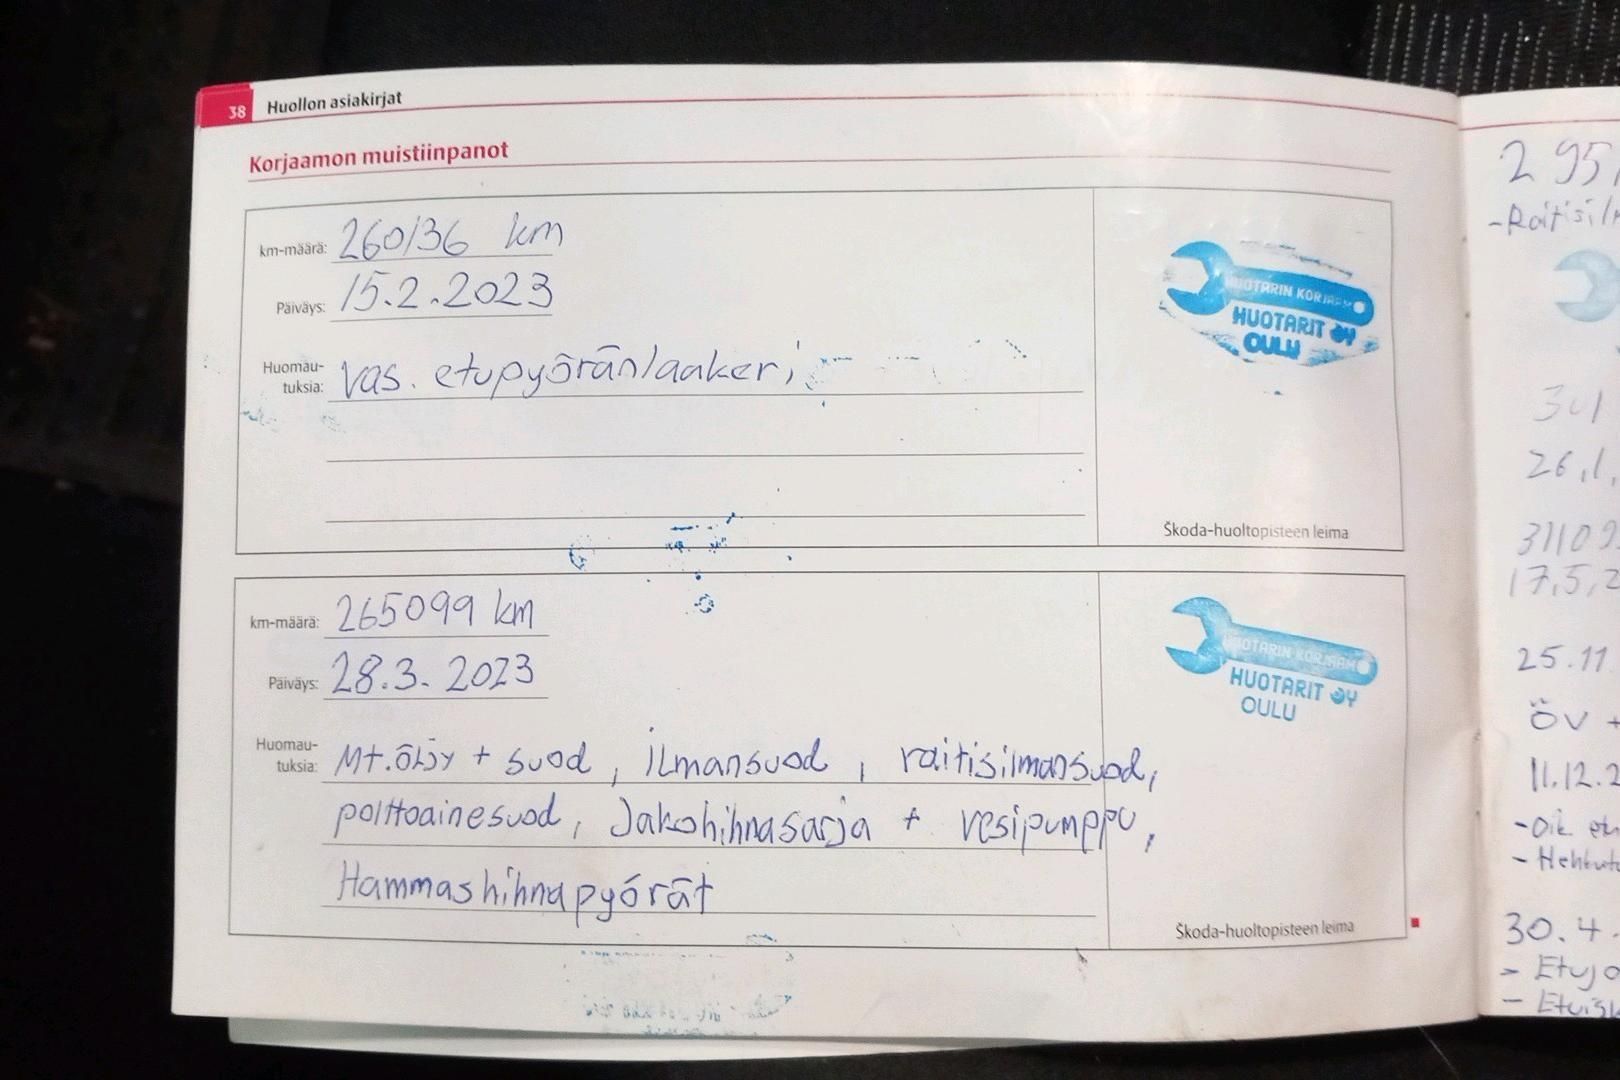 38 Huollon asiakirjat
Korjaamon muistiinpanot
km-määrä: 260136 km
Päiväys: 15.2.2023
Huomau-
tuksia: Vas. etupyöränlaakeri
HUOTARIN KORJAAMO
HUOTARIT OY
OULU
Škoda-huoltopisteen leima
km-määrä: 265099 km
Päiväys: 28.3.2023
Huomau-
tuksia: Mt.öljy + suod, ilmansuod, raitisilmansuod,
polttoainesuod, Jakohihnasarja + vesipumppu,
Hammashihnapyörät
HUOTARIN KORJAAMO
HUOTARIT OY
OULU
Škoda-huoltopisteen leima
295
26.1.
17.5.2
25.11.
ÖV +
11.12.2
- Oik. etu
30.4.